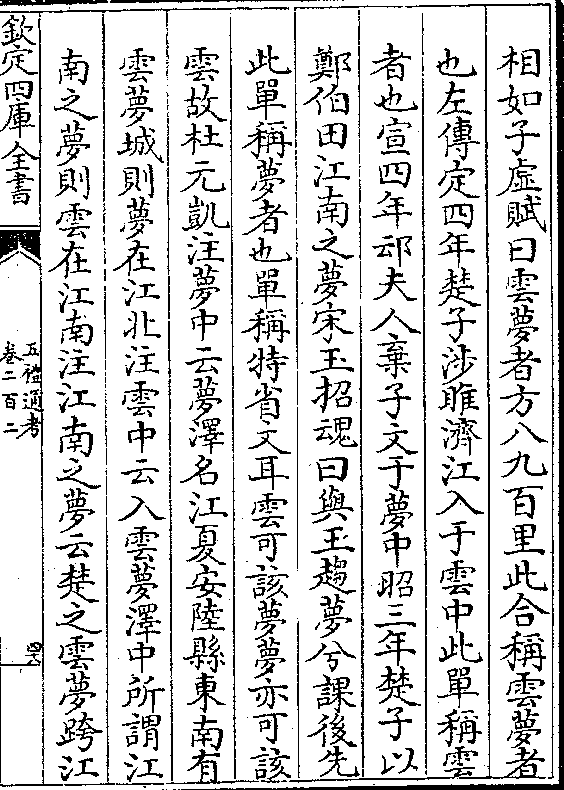 相如子虛賦曰雲夢者方八九百里此合稱雲夢者
也左傳定四年楚子涉睢濟江入于雲中此單稱雲
者也宣四年䢵夫人棄子文于夢中昭三年楚子以
鄭伯田江南之夢宋玉招魂曰與王趨夢兮課後先
此單稱夢者也單稱特省文耳雲可該夢夢亦可該
雲故杜元凱注夢中云夢澤名江夏安陸縣東南有
雲夢城則夢在江北注雲中云入雲夢澤中所謂江
南之夢則雲在江南注江南之夢云楚之雲夢跨江
欽定四庫全書
五禮通考
卷二百二